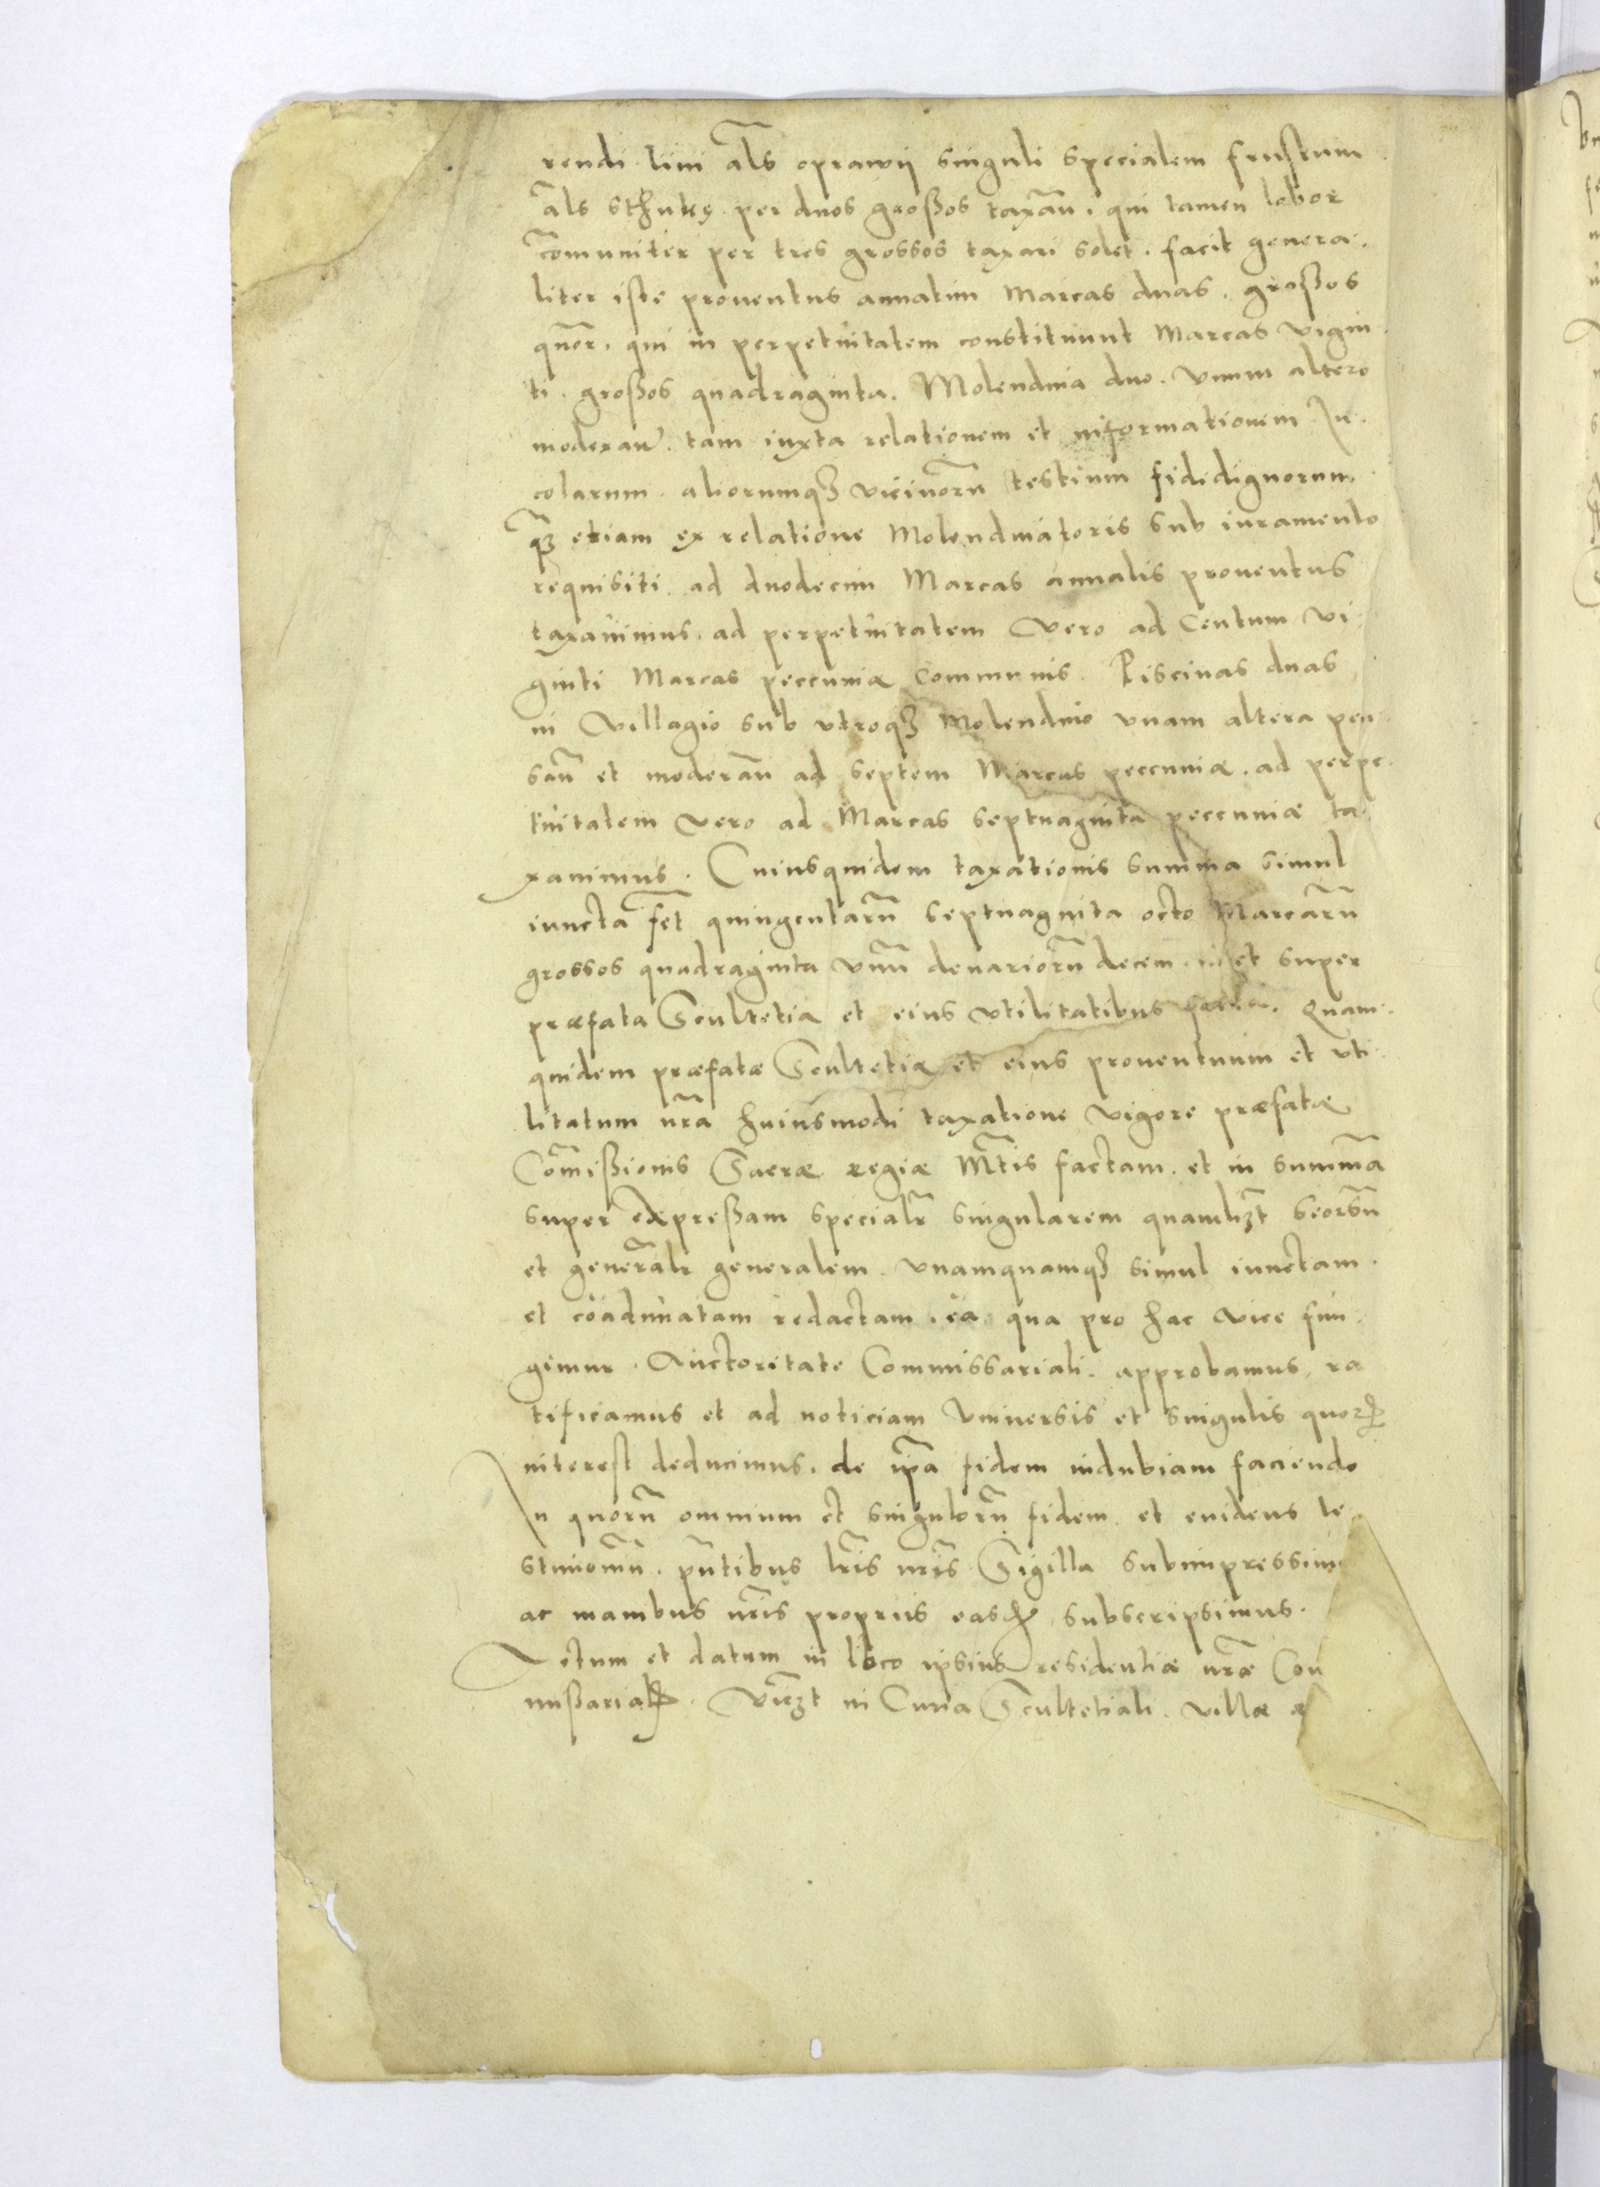 rendi lini als̃ oprawij singuli specialem frustum
als̃ sthukę per duos großos taxañ. qui tamen labor
com̃uniter per tres grossos taxari solet. facit genera-
liter iste prouentus annatim Marcas duas. großos
quõr. qui in perpetuitatem constituunt Marcas vigin
ti. großos quadraginta. Molendina duo. Vnum altero
moderañ. tam iuxta relationem et informationem In-
colarum aliorumq₃ vicinorũ testium fidedignorum
q̃₃ etiam ex relatione Molendinatoris sub iuramento
requisiti. ad duodecim Marcas annalis prouentus
taxauimus. ad perpetuitatem vero ad Centum vi-
ginti Marcas peccuniæ communis. Piscinas duas
in villagio sub vtroq₃ Molendino vnam altera pen
sañ et moderañ ad septem Marcas peccuniæ. ad perpe-
tuitatem vero ad Marcas septuaginta peccuniæ ta-
xauimus. Cuiusquidem taxationis summa simul
iuncta fc̃t quingentarũ septuaginta octo Marcarũ
grossos quadraginta vnũ denariorũ decem. et super
præfata Scultetia et eius vtilitatibus Quam-
quidem præfatæ Scultetiæ et eius prouentuum et vti-
litatum nrã huiusmodi taxatione vigore præfatæ
Com̃ißionis Sacræ regiæ Mt̃is factam. et in summa
super expreßam specialr̃ singularem quamlib₃t seorsũ
et generalr̃ generalem. vnamquamq₃ simul iunctam.
et coadunatam redactam. ea qua pro hac vice fun-
gimur. Auctoritate Commissariali. approbamus, ra
tificamus et ad noticiam vniuersis et singulis quor
interest deducimus. de ip̃a fidem indubiam faciendo
In quorũ omnium et singulorũ fidem et euidens te-
stimoniũ. pñtibus lr̃is nr̃is Sigilla subimpressim
ac manibus nr̃is proprijs easd subscripsimus.
Actum et datum in loco ipsius residentiæ nr̃æ Com
mißarial. Vic̃₃t in Curia Scultetiali. villæ